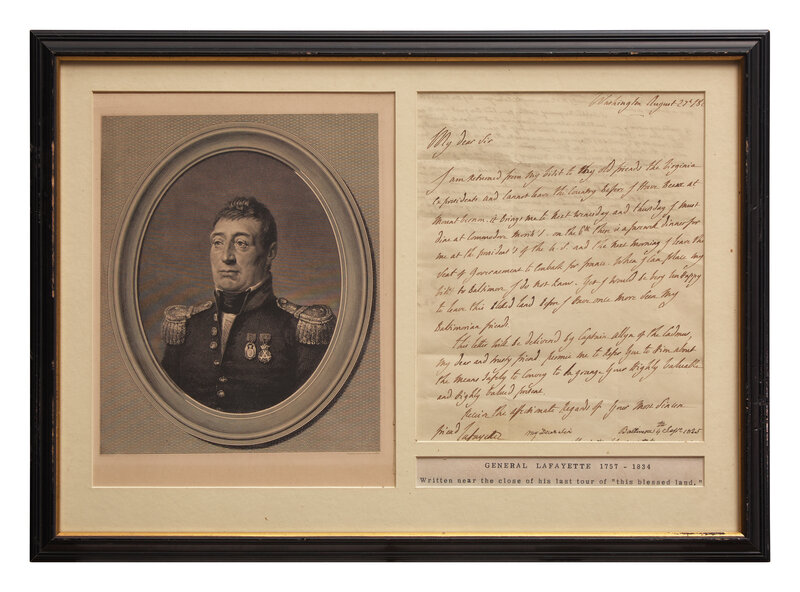 Washington August 27th 18
My dear Sir
I am returned from my visit to my old friends the Virginia
Expresidents and Cannot leave the Country Before I Have Been at
Mount Vernon. it Brings me to next wenesday and thursday I must
dine at Commodore Morris's. on the 6th there is a farewell dinner for
me at the president's of the U. S. and the next morning I leave the
Seat of Government to Embark for france. When I Can place my
visit to Baltimore I do not Know. Yet I would be very Unhappy
to leave this blessed land Before I have once more Seen My
Baltimorian friends.
This letter will be delivered by Captain allyn of the Cadmus,
my dear and trusty friend. permit me to Refer You to Him about
the Means Safely to Convey to la grange Your Highly Valuable
and Highly Valued present.
Receive the affectionate Regards of Your Most Sincere
friend Lafayette
My Dear Sir Baltimore 4th Sept. 1825
GENERAL LAFAYETTE 1757 - 1834
Written near the close of his last tour of "this blessed land."